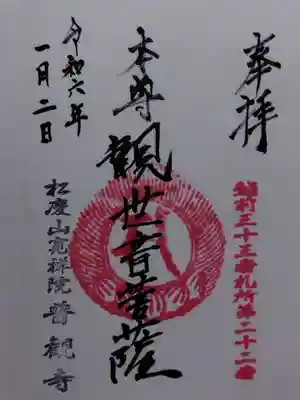 奉拝
三十三番札所第二十二番
本尊 観世音菩薩
令和六年
一月二日
松慶山寛祥院 普観寺